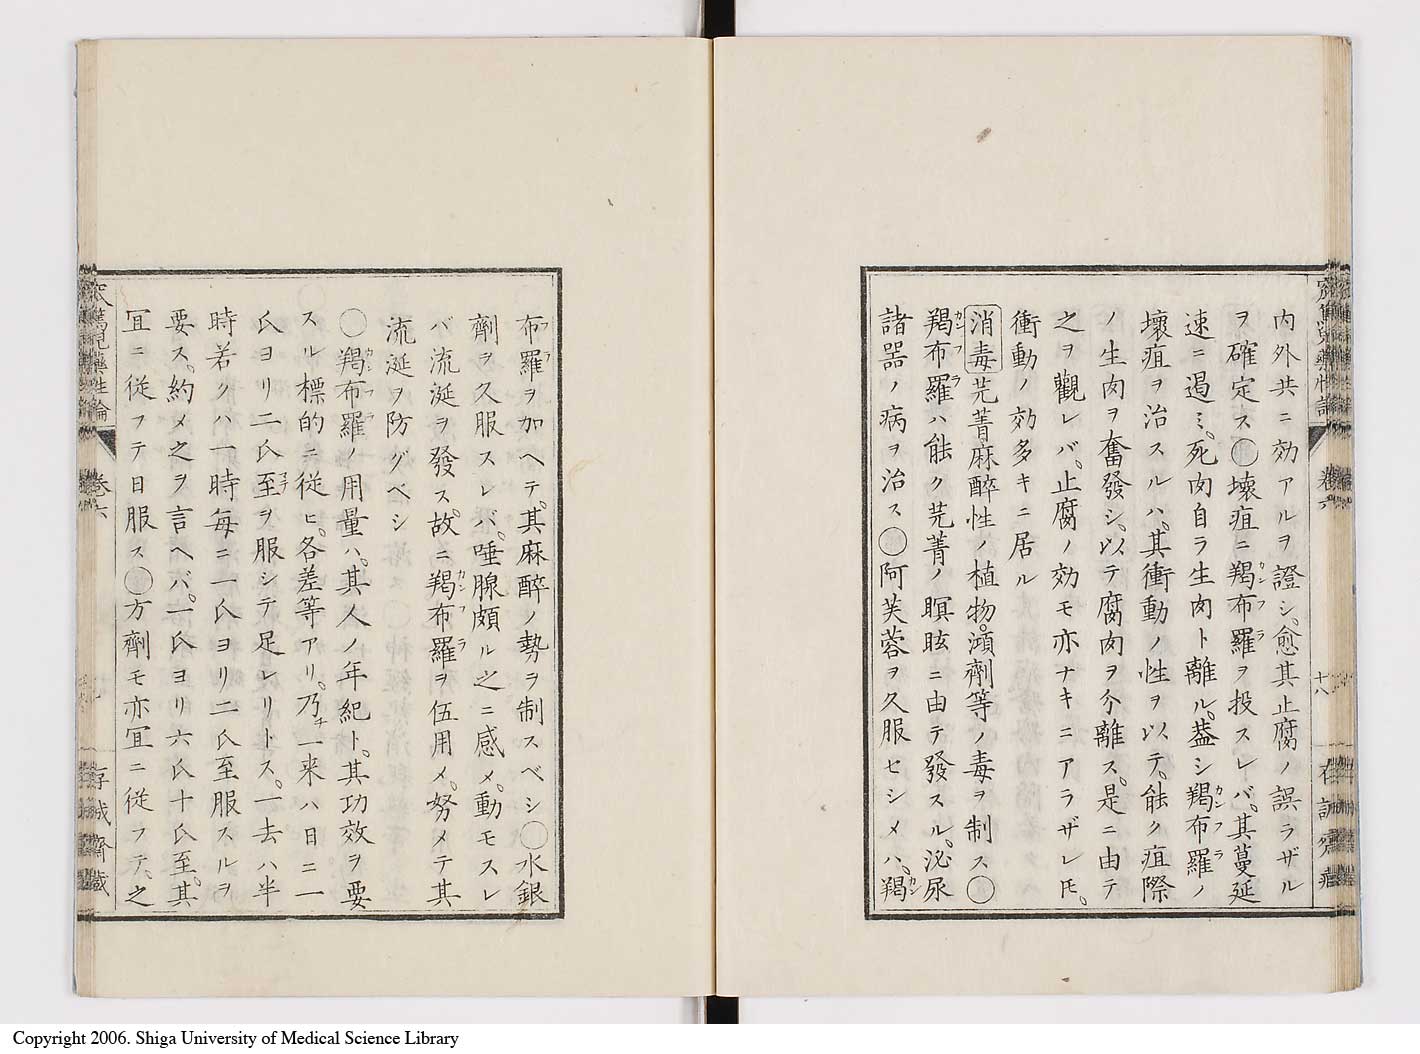 内外共ニ効アルヲ證シ愈其止腐ノ誤ラザル
ヲ確定ス〇壞疽ニ羯布羅ヲ投スレバ其蔓延
速ニ遏ミ死肉自ラ生肉ト離ル蓋シ羯布羅ノ
壞疽ヲ治スルハ其衝動ノ性ヲ以テ能ク疽際
ノ生肉ヲ奮發シ以テ腐肉ヲ分離ス是ニ由テ
之ヲ觀レバ止腐ノ効モ亦ナキニアラザレ𪜈
衝動ノ効多キニ居ル
消毒 芫菁麻醉性ノ植物澒劑等ノ毒ヲ制ス〇
羯布羅ハ能ク芫菁ノ瞑眩ニ由テ發スル泌尿
諸器ノ病ヲ治ス〇阿芙蓉ヲ久服セシメハ羯
布羅ヲ加ヘテ其麻醉ノ勢ヲ制スベシ〇水銀
劑ヲ久服スレバ唾腺頗ル之ニ感メ動モスレ
バ流涎ヲ發ス故ニ羯布羅ヲ伍用メ努メテ其
流涎ヲ防グベシ
〇羯布羅ノ用量ハ其人ノ年紀ト其功效ヲ要
スル標的ニ從ヒ各差等アリ乃チ一来ハ日ニ一
氏ヨリ二氏至ヲ服シテ足レリトス一去ハ半
時若クハ一時每ニ一氏ヨリ二氏至服スルヲ
要ス約メ之ヲ言ヘバ一氏ヨリ六氏十氏至其
冝ニ従フテ日服ス〇方劑モ亦冝ニ従フテ之
窊篤児藥性論
卷六
十八
存誠齋蔵